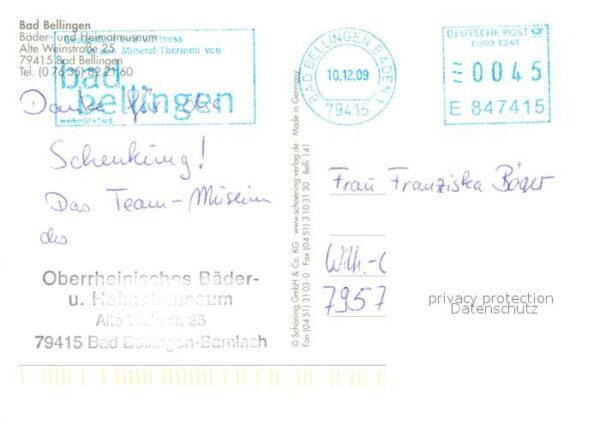 Bad Bellingen
Bäder- und Heimatmuseum
Alte Weinstraße 25
79415 Bad Bellingen
Tel. (0 76 35) 82 21 60
Gesundheit und Wellness
in den Mineral-Thermen von
bad
bellingen
markgräflerland
BAD BELLINGEN BADEN 1
10.12.09
79415
DEUTSCHE POST
EURO CENT
0045
E 847415
Danke für die
Schenkung!
Das Team-Museum
des
Oberrheinisches Bäder-
u. Heimatmuseum
Alte Weinstr. 25
79415 Bad Bellingen-Bamlach
© Schöning GmbH & Co. KG · www.schoening-verlag.de · Made in Germany
Fon (04 51) 31 03 0 · Fax (04 51) 3 10 31 30 Belli 141
Frau Franziska Böger
Wilh.-
7957
privacy protection
Datenschutz